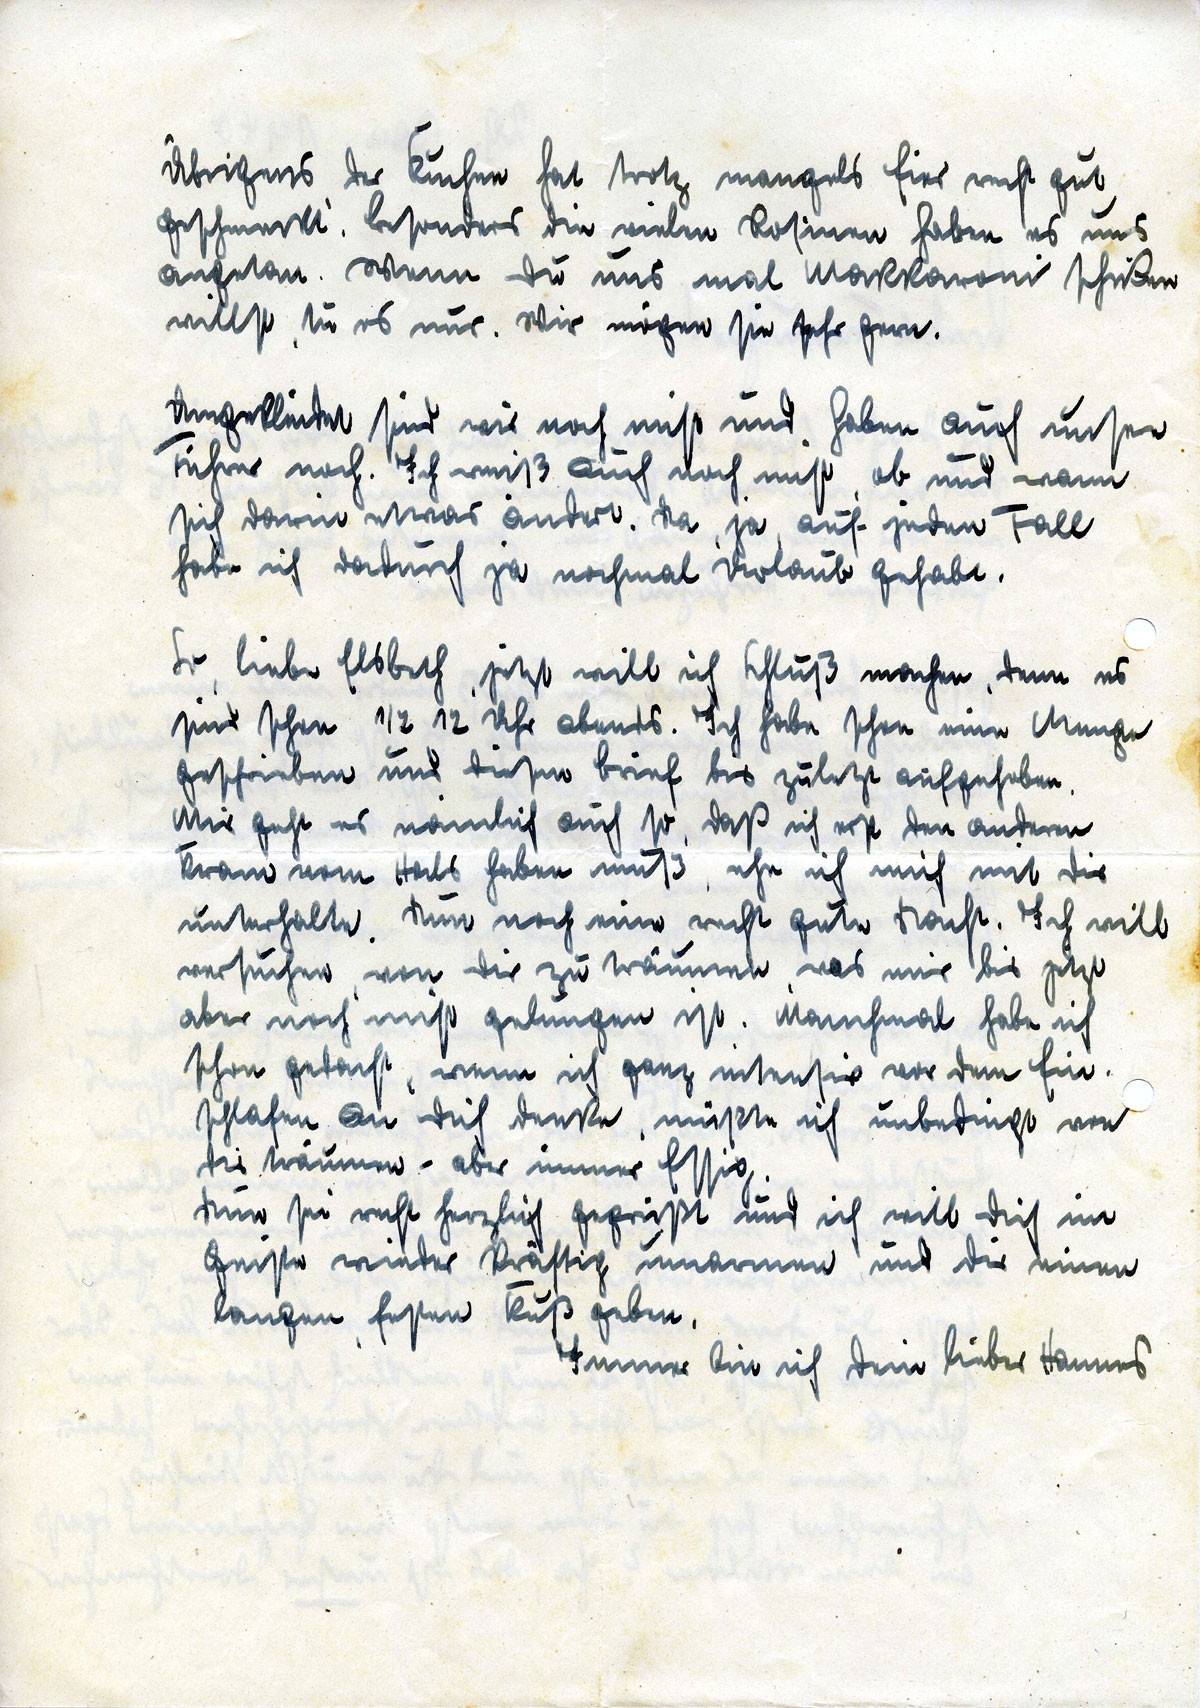 Übrigens der Kuchen hat trotz mangels Eier recht gut
geschmeckt. Besonders die vielen Rosinen haben es uns
angetan. Wenn Du uns mal Makkaroni schicken
willst, tu es nur. Wir mögen sie sehr gern.
Umgekleidet sind wir noch nicht und haben auch unseren
Führer noch. Ich weiß auch noch nicht, ob und wann
sich darin etwas ändert. Na, ja, auf jeden Fall
habe ich dadurch ja nochmal Urlaub gehabt.
So, liebe Elsbeth, jetzt will ich Schluß machen, denn es
sind schon 1/2 12 Uhr abends. Ich habe schon eine Menge
geschrieben und diesen Brief bis zuletzt aufgehoben.
Mir geht es nämlich auch so, daß ich erst den anderen
Kram vom Hals haben muß, ehe ich mich mit Dir
unterhalte. Nun noch eine recht gute Nacht. Ich will
versuchen, von Dir zu träumen, was mir bis jetzt
aber noch nicht gelungen ist. Manchmal habe ich
schon gedacht, wenn ich ganz intensiv vor dem Ein-
schlafen an Dich denke, müßte ich unbedingt von
Dir träumen - aber immer Essig.
Nun sei recht herzlich gegrüßt und ich will Dich im
Geiste wieder kräftig umarmen und Dir einen
langen, festen Kuß geben.
Immer bin ich Dein lieber Hannes